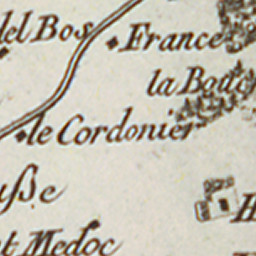 del Bos
France
la Bouc
le Cordonier
usse
t Medoc
H